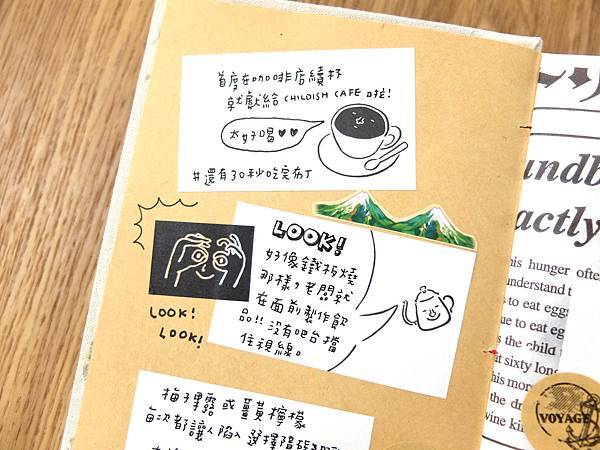 首度在咖啡店續杯
就獻給 CHILDISH CAFE 啦!
太好喝♥♥
#還有30秒吃完布丁
LOOK!
好像鐵板燒
那樣,老闆就
在面前製作飲
品!!沒有吧台擋
住視線。
LOOK!
LOOK!
梅子果露 或 薑黃檸檬
每次都讓人陷入 選擇障
undb
actly
his hunger ofte
understand t
s to eat eggs
ue to eat eg
s the child
t sixty long
his mor
the dr
wine ki
VOYAGE